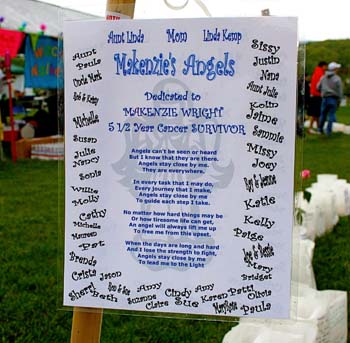 Aunt Linda Mom Linda Kemp
Makenzie's Angels
Dedicated to
MAKENZIE WRIGHT
5 1/2 Year Cancer SURVIVOR
Angels can't be seen or heard
But I know that they are there.
Angels stay close by me.
They are everywhere.
In every task that I may do,
Every journey that I make,
Angels stay close by me
To guide each step I take.
No matter how hard things may be
Or how tiresome life can get,
An angel will always lift me up
To free me from this upset.
When the days are long and hard
And I lose the strength to fight,
Angels stay close by me
To lead me to the Light
Aunt
Paula
Uncle Mark
Michelle
Susan
Julie
Nancy
Sonia
Willie
Molly
Cathy
Michelle
Maureen
Pat
Brenda
Crista Jason
Sherri Beth
Amy
Suzanne
Claire
Cindy
Sue
Amy
Karen
Patti
MaryRose
Olivia
Paula
Sissy
Justin
Nana
Aunt Julie
Kolin
Jaime
Sammie
Missy
Joey
Katie
Kelly
Paige
Mary
Bridget